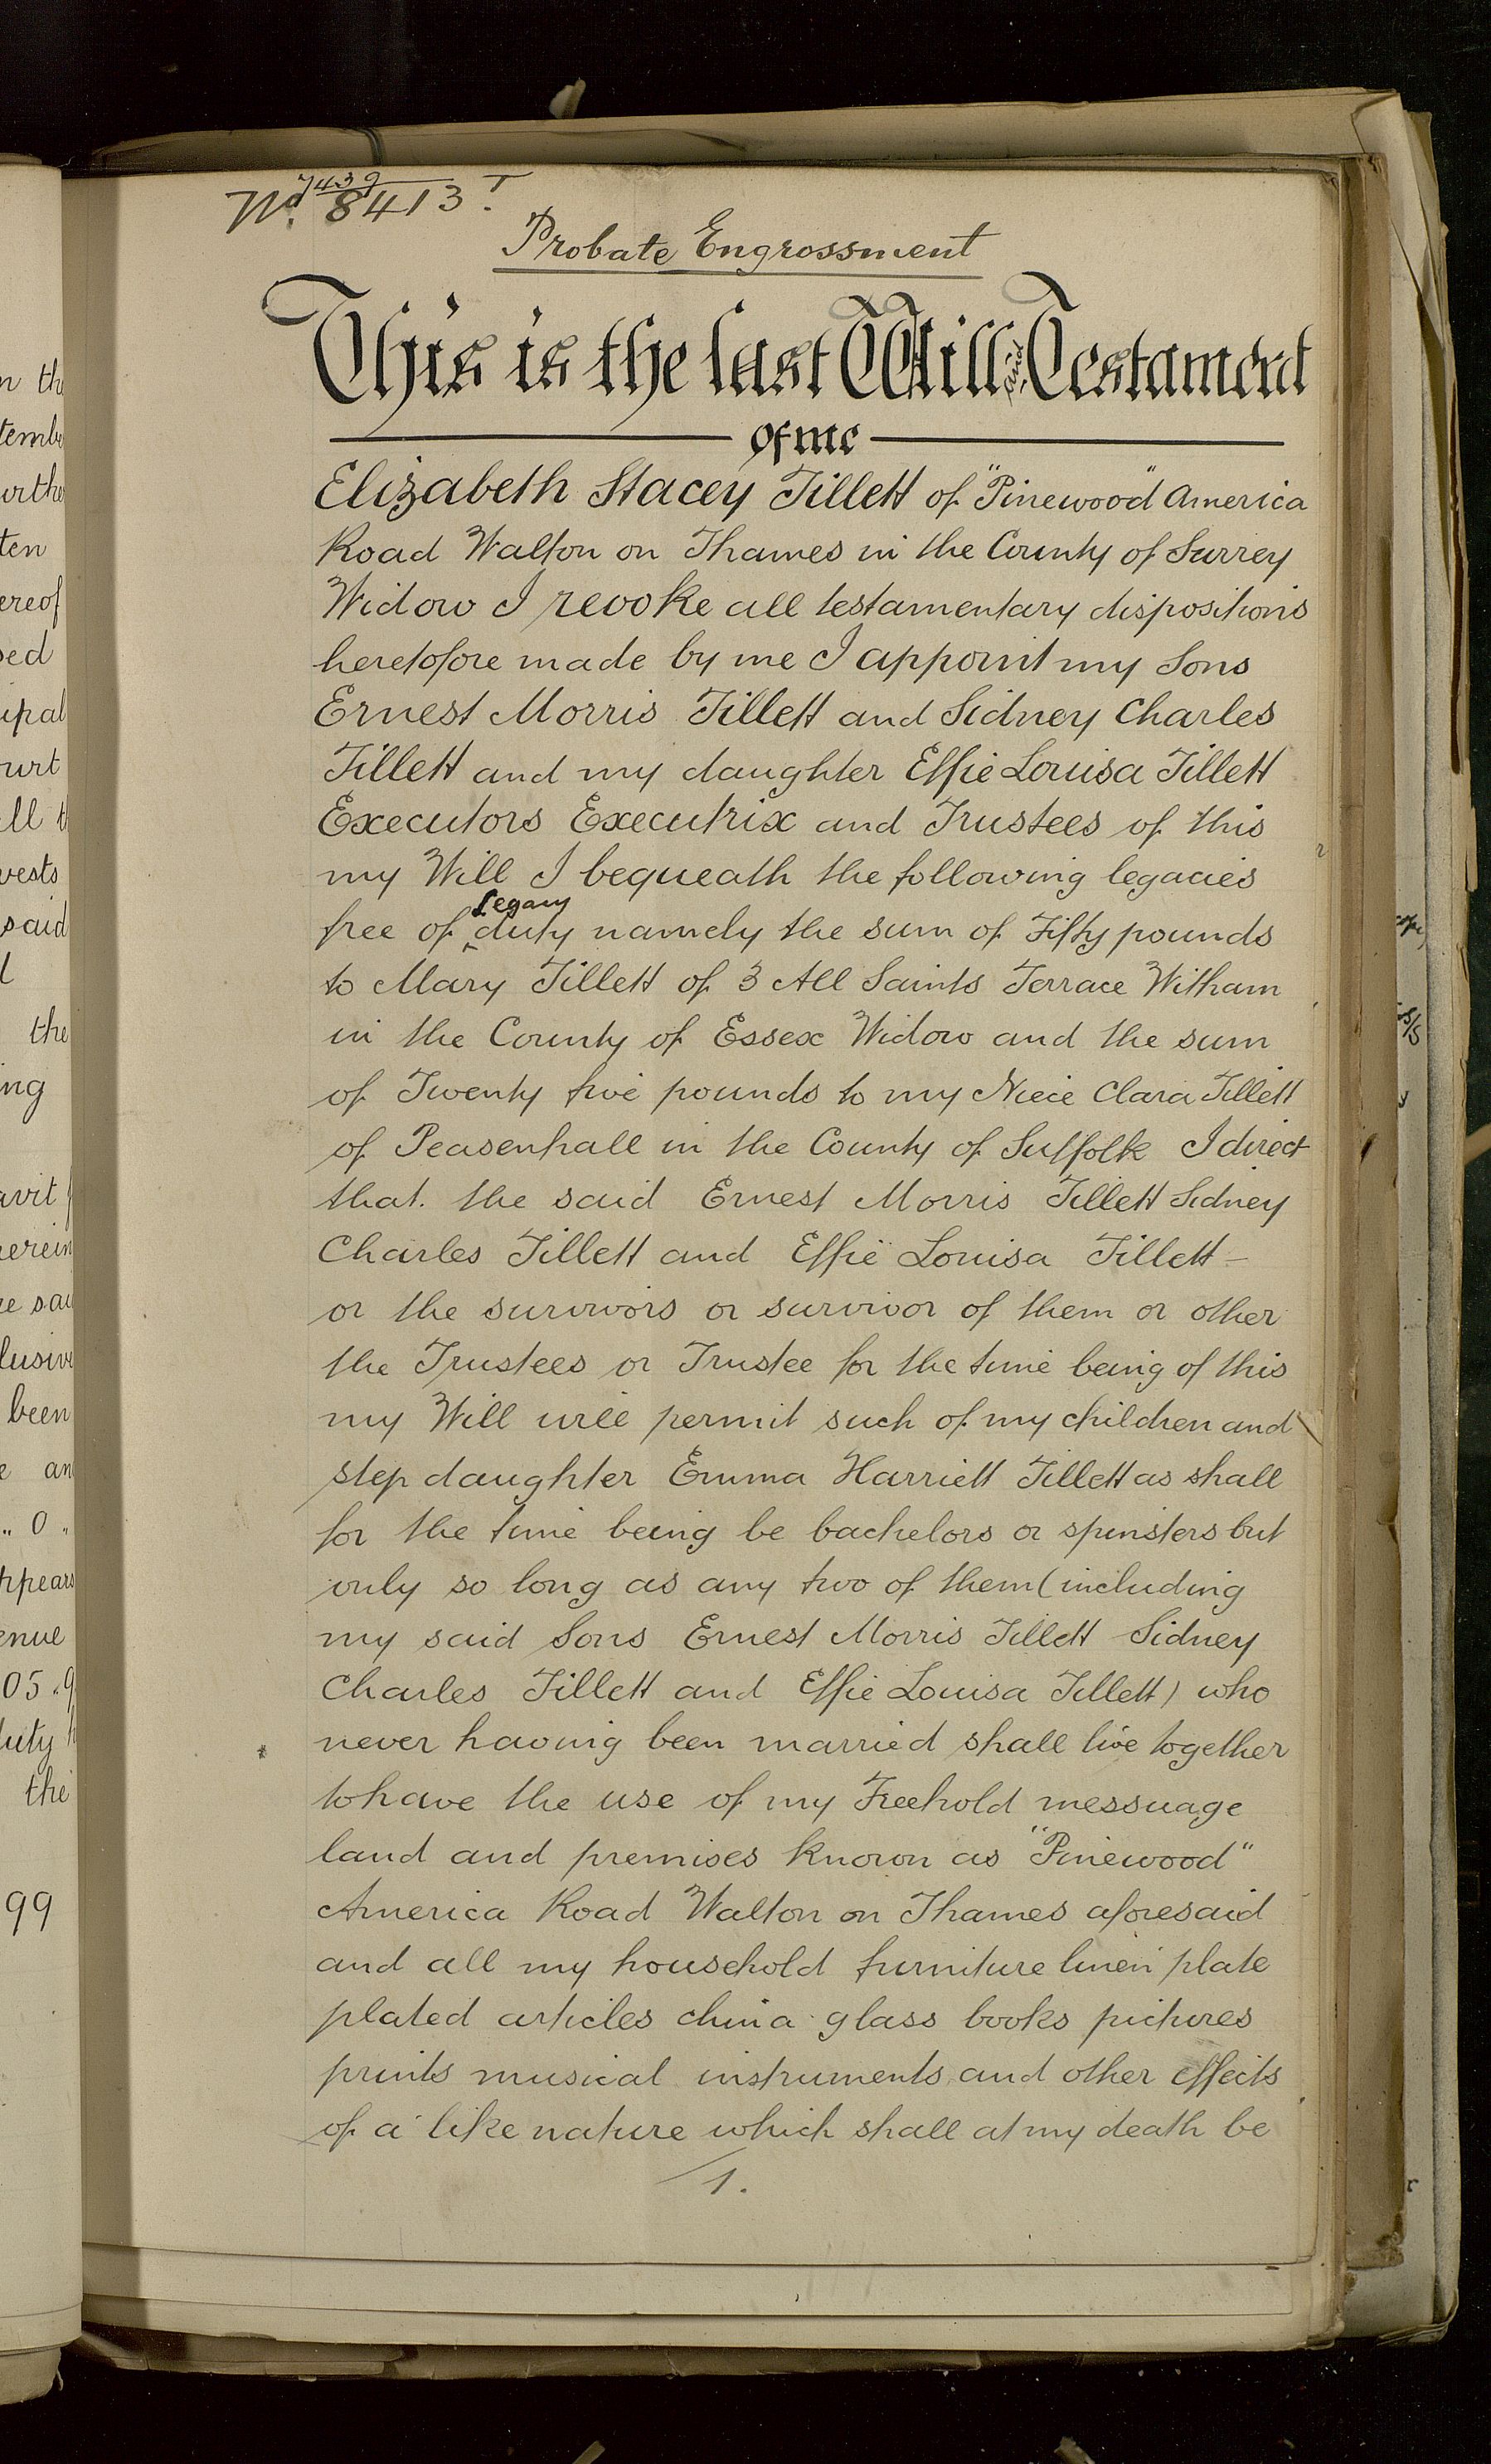 7439
No. 8413 T.
Probate Engrossment
This is the last Will and Testament
of me
Elizabeth Stacey Tillett of "Pinewood" America
Road Walton on Thames in the County of Surrey
Widow I revoke all testamentary dispositions
heretofore made by me I appoint my Sons
Ernest Morris Tillett and Sidney Charles
Tillett and my daughter Effie Louisa Tillett
Executors Executrix and Trustees of this
my Will I bequeath the following legacies
free of Legacy duty namely the sum of Fifty pounds
to Mary Tillett of 3 All Saints Terrace Witham
in the County of Essex Widow and the sum
of Twenty five pounds to my Niece Clara Tillett
of Peasenhall in the County of Suffolk I direct
that. the said Ernest Morris Tillett Sidney
Charles Tillett and Effie Louisa Tillett –
or the survivors or survivor of them or other
the Trustees or Trustee for the time being of this
my Will will permit such of my children and
step daughter Emma Harriett Tillett as shall
for the time being be bachelors or spinsters but
only so long as any two of them (including
my said Sons Ernest Morris Tillett Sidney
Charles Tillett and Effie Louisa Tillett) who
never having been married shall live together
to have the use of my Freehold messuage
land and premises known as "Pinewood"
America Road Walton on Thames aforesaid
and all my household furniture linen plate
plated articles china glass books pictures
prints musical instruments and other effects
of a like nature which shall at my death be
1.